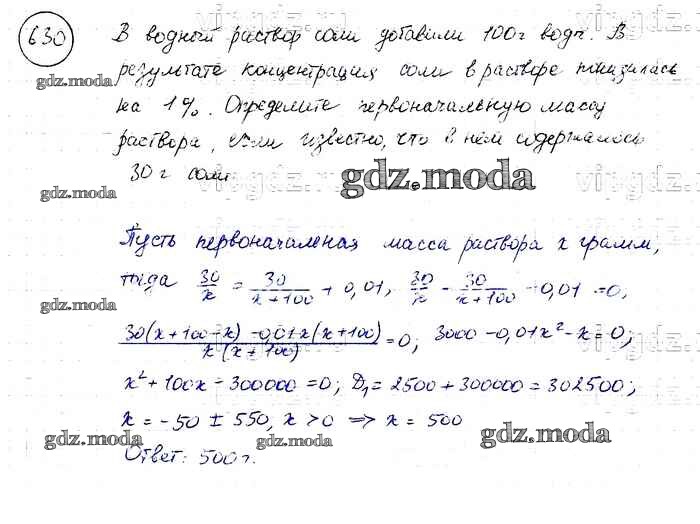 630
В водный раствор соли добавили 100г воды. В
результате концентрация соли в растворе понизилась
на 1%. Определите первоначальную массу
раствора, если известно, что в нём содержалось
30г соли.
gdz.moda
Пусть первоначальная масса раствора x грамм,
тогда 30/x = 30/(x+100) + 0,01, 30/x - 30/(x+100) - 0,01 = 0,
(30(x+100-x) - 0,01x(x+100))/(x(x+100)) = 0; 3000 - 0,01x² - x = 0;
x² + 100x - 300000 = 0; D₁ = 2500 + 300000 = 302500;
x = -50 ± 550, x > 0 ⟹ x = 500
Ответ: 500г.
gdz.moda
gdz.moda
gdz.moda
gdz.moda
gdz.moda
gdz.moda